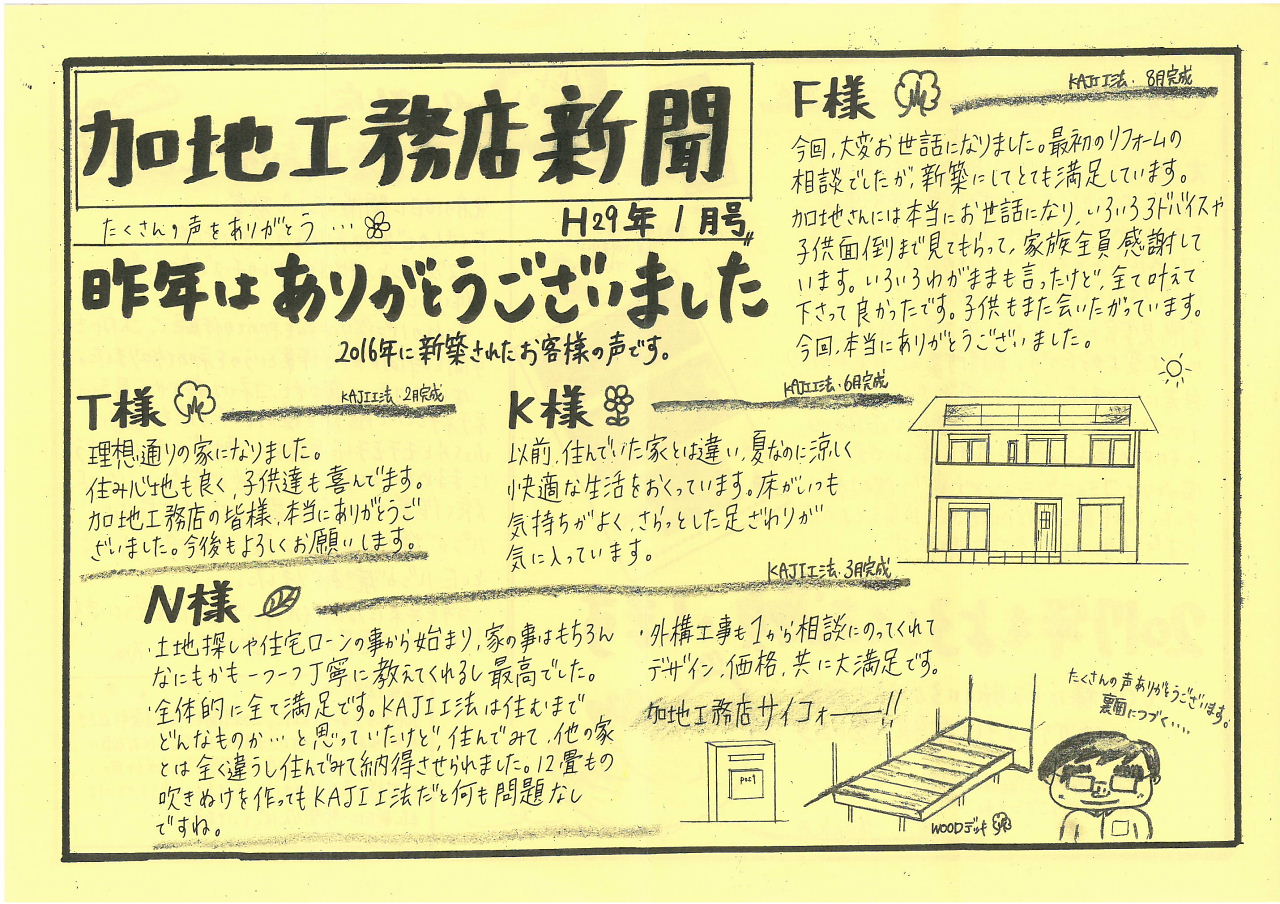 加地工務店新聞
たくさんの声をありがとう…
H29年1月号
昨年はありがとうございました
2016年に新築されたお客様の声です。
T様
KAJI工法・2月完成
理想通りの家になりました。
住み心地も良く、子供達も喜んでます。
加地工務店の皆様、本当にありがとうご
ざいました。今後もよろしくお願いします。
K様
KAJI工法・6月完成
以前、住んでいた家とは違い、夏なのに涼しく
快適な生活をおくっています。床がいつも
気持ちがよく、さらっとした足ざわりが
気に入っています。
F様
KAJI工法・8月完成
今回、大変お世話になりました。最初のリフォームの
相談でしたが、新築にしてとても満足しています。
加地さんには本当にお世話になり、いろいろアドバイスや
子供面倒まで見てもらって、家族全員感謝して
います。いろいろわがままも言ったけど、全て叶えて
下さって良かったです。子供もまた会いたがっています。
今回、本当にありがとうございました。
N様
KAJI工法・3月完成
・土地探しや住宅ローンの事から始まり、家の事はもちろん
なにもかも一つ一つ丁寧に教えてくれるし最高でした。
・全体的に全て満足です。KAJI工法は住むまで
どんなものか…と思っていたけど、住んでみて、他の家
とは全く違うし住んでみて納得させられました。12畳もの
吹きぬけを作ってもKAJI工法だと何も問題なし
ですね。
・外構工事も1から相談にのってくれて
デザイン、価格、共に大満足です。
加地工務店サイコォー――!!
POST
WOODデッキ
たくさんの声ありがとうございます。
裏面につづく…